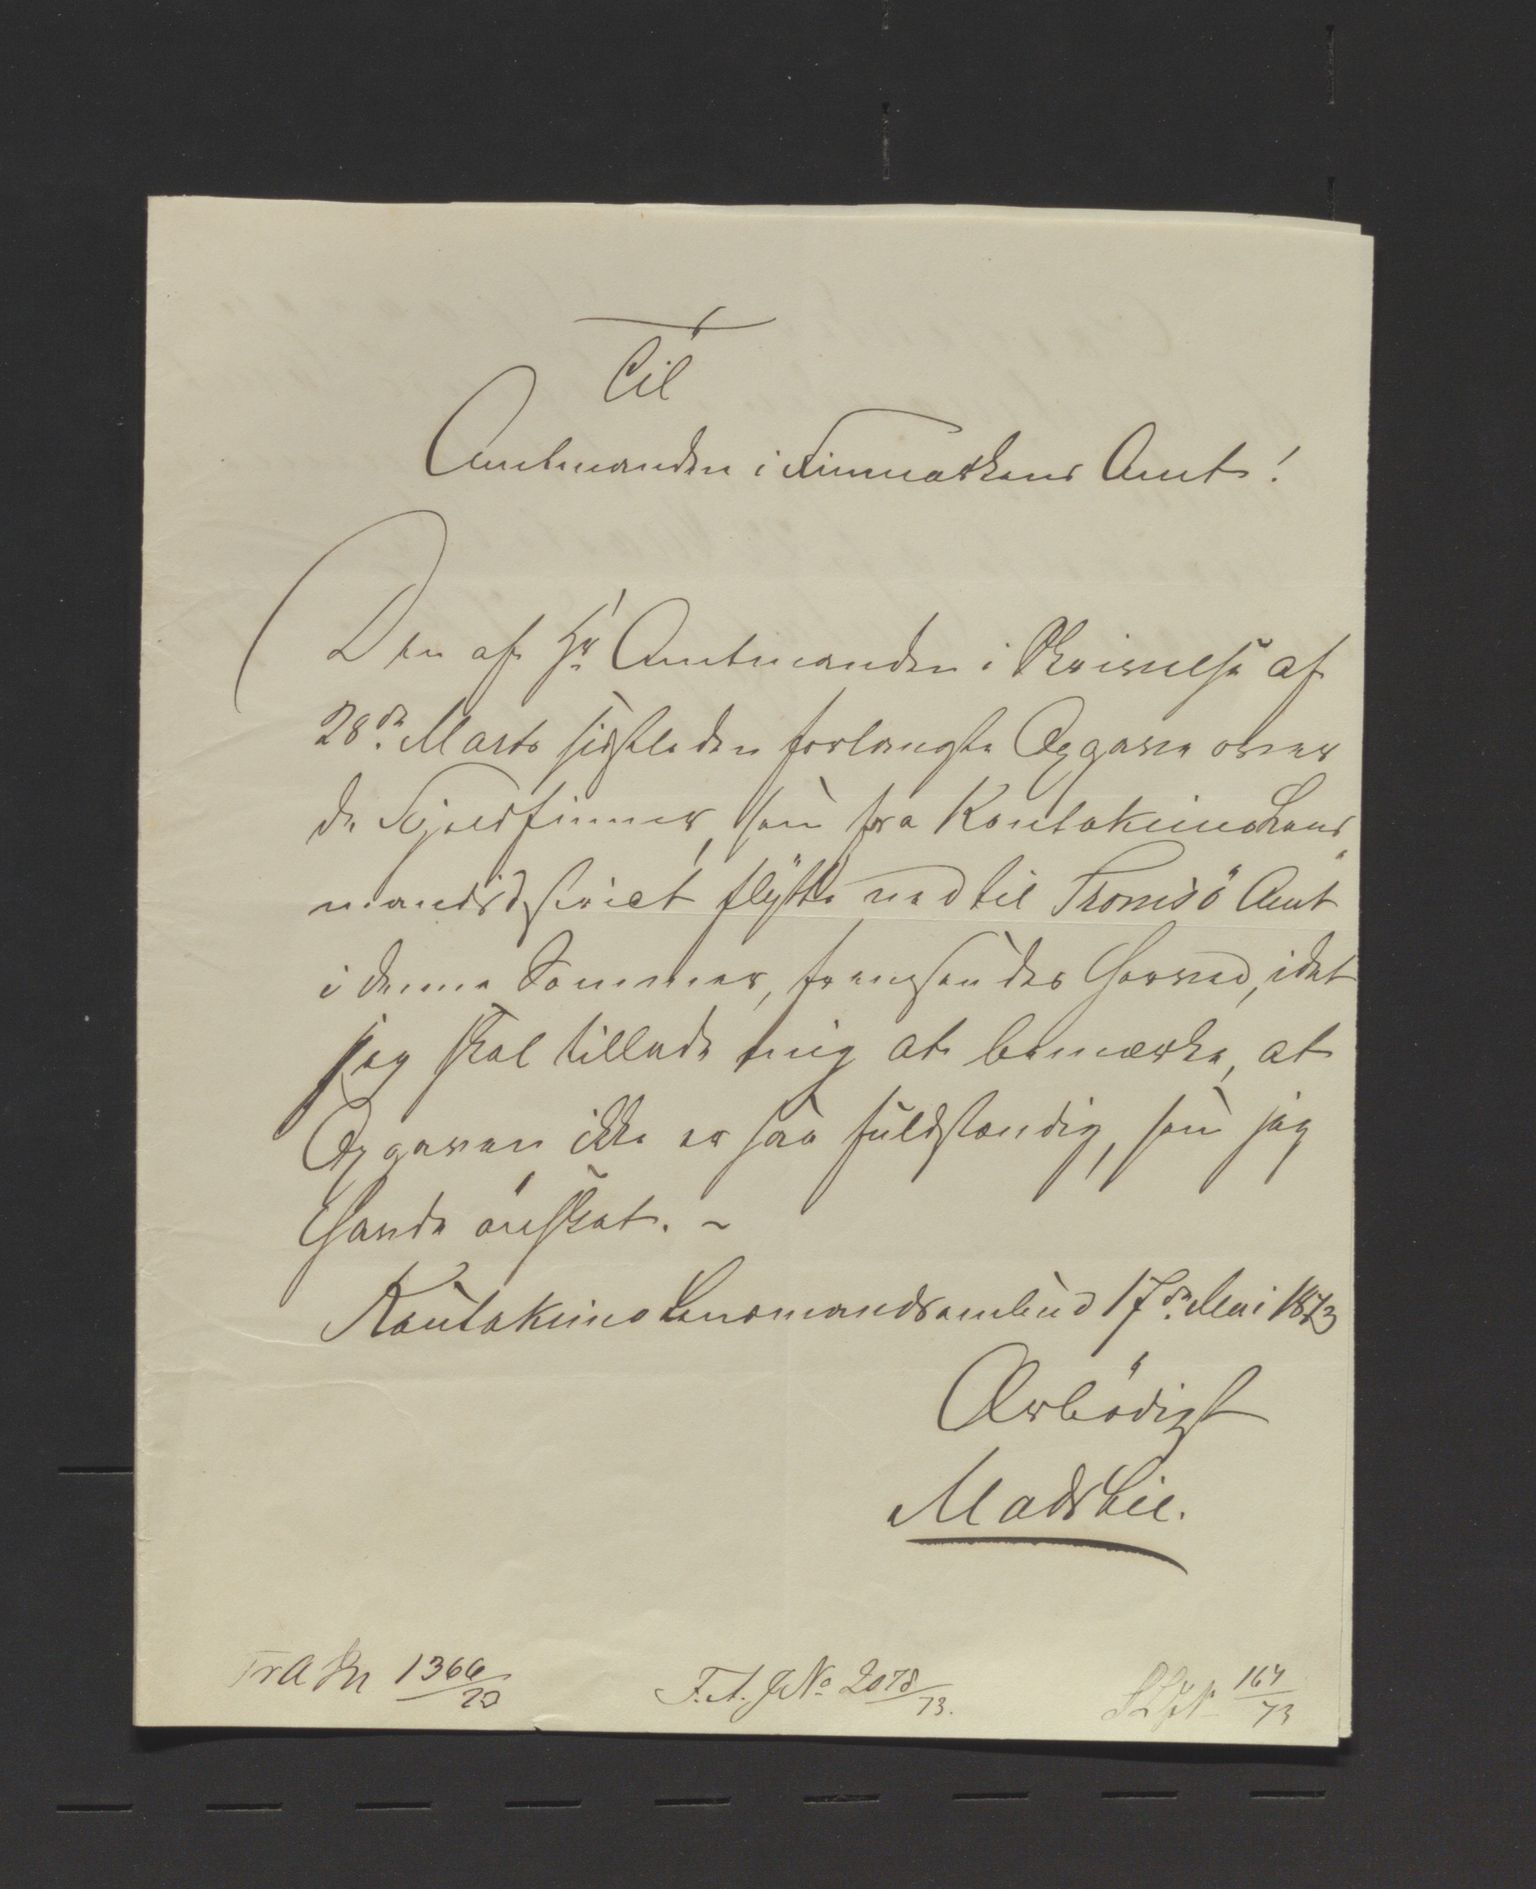 Til
Amtmanden i Finmarkens Amt!
Den af Hr Amtmanden i Skrivelse af
28de Marts sidstleden forlangte Opgave over
de Fjeldfinner, som fra Kautokeino Lens
mandsdistrict flytte ned til Tromsö Amt
i denne Sommer, fremsendes herved, idet
jeg skal tillade mig at bemærke, at
Opgaven ikke er saa fuldstændig, som jeg
havde önsket. ~
Kautokeino Lensmandsombud 17de Mai 1873
Ærbödigst
Mads Lie.
TrA Jn 1366/73
F.A. J No 2078/73.
167/73